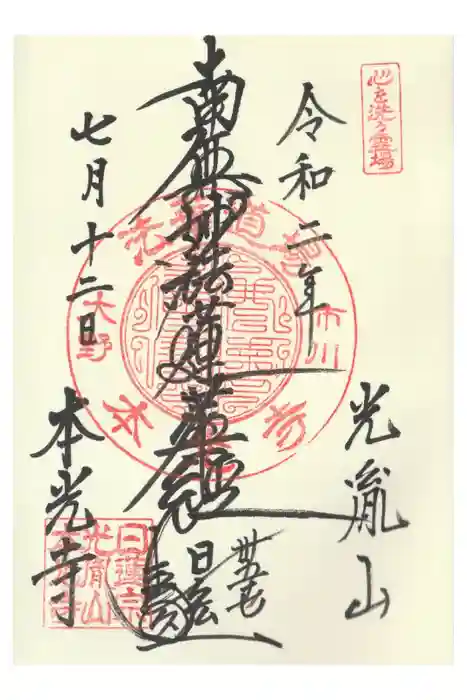 心を洗う霊場
令和二年
光胤山
南無妙法蓮華経
卅五世
日
七月十二日
本光寺
市川
大野
日蓮宗
光胤山
本光寺